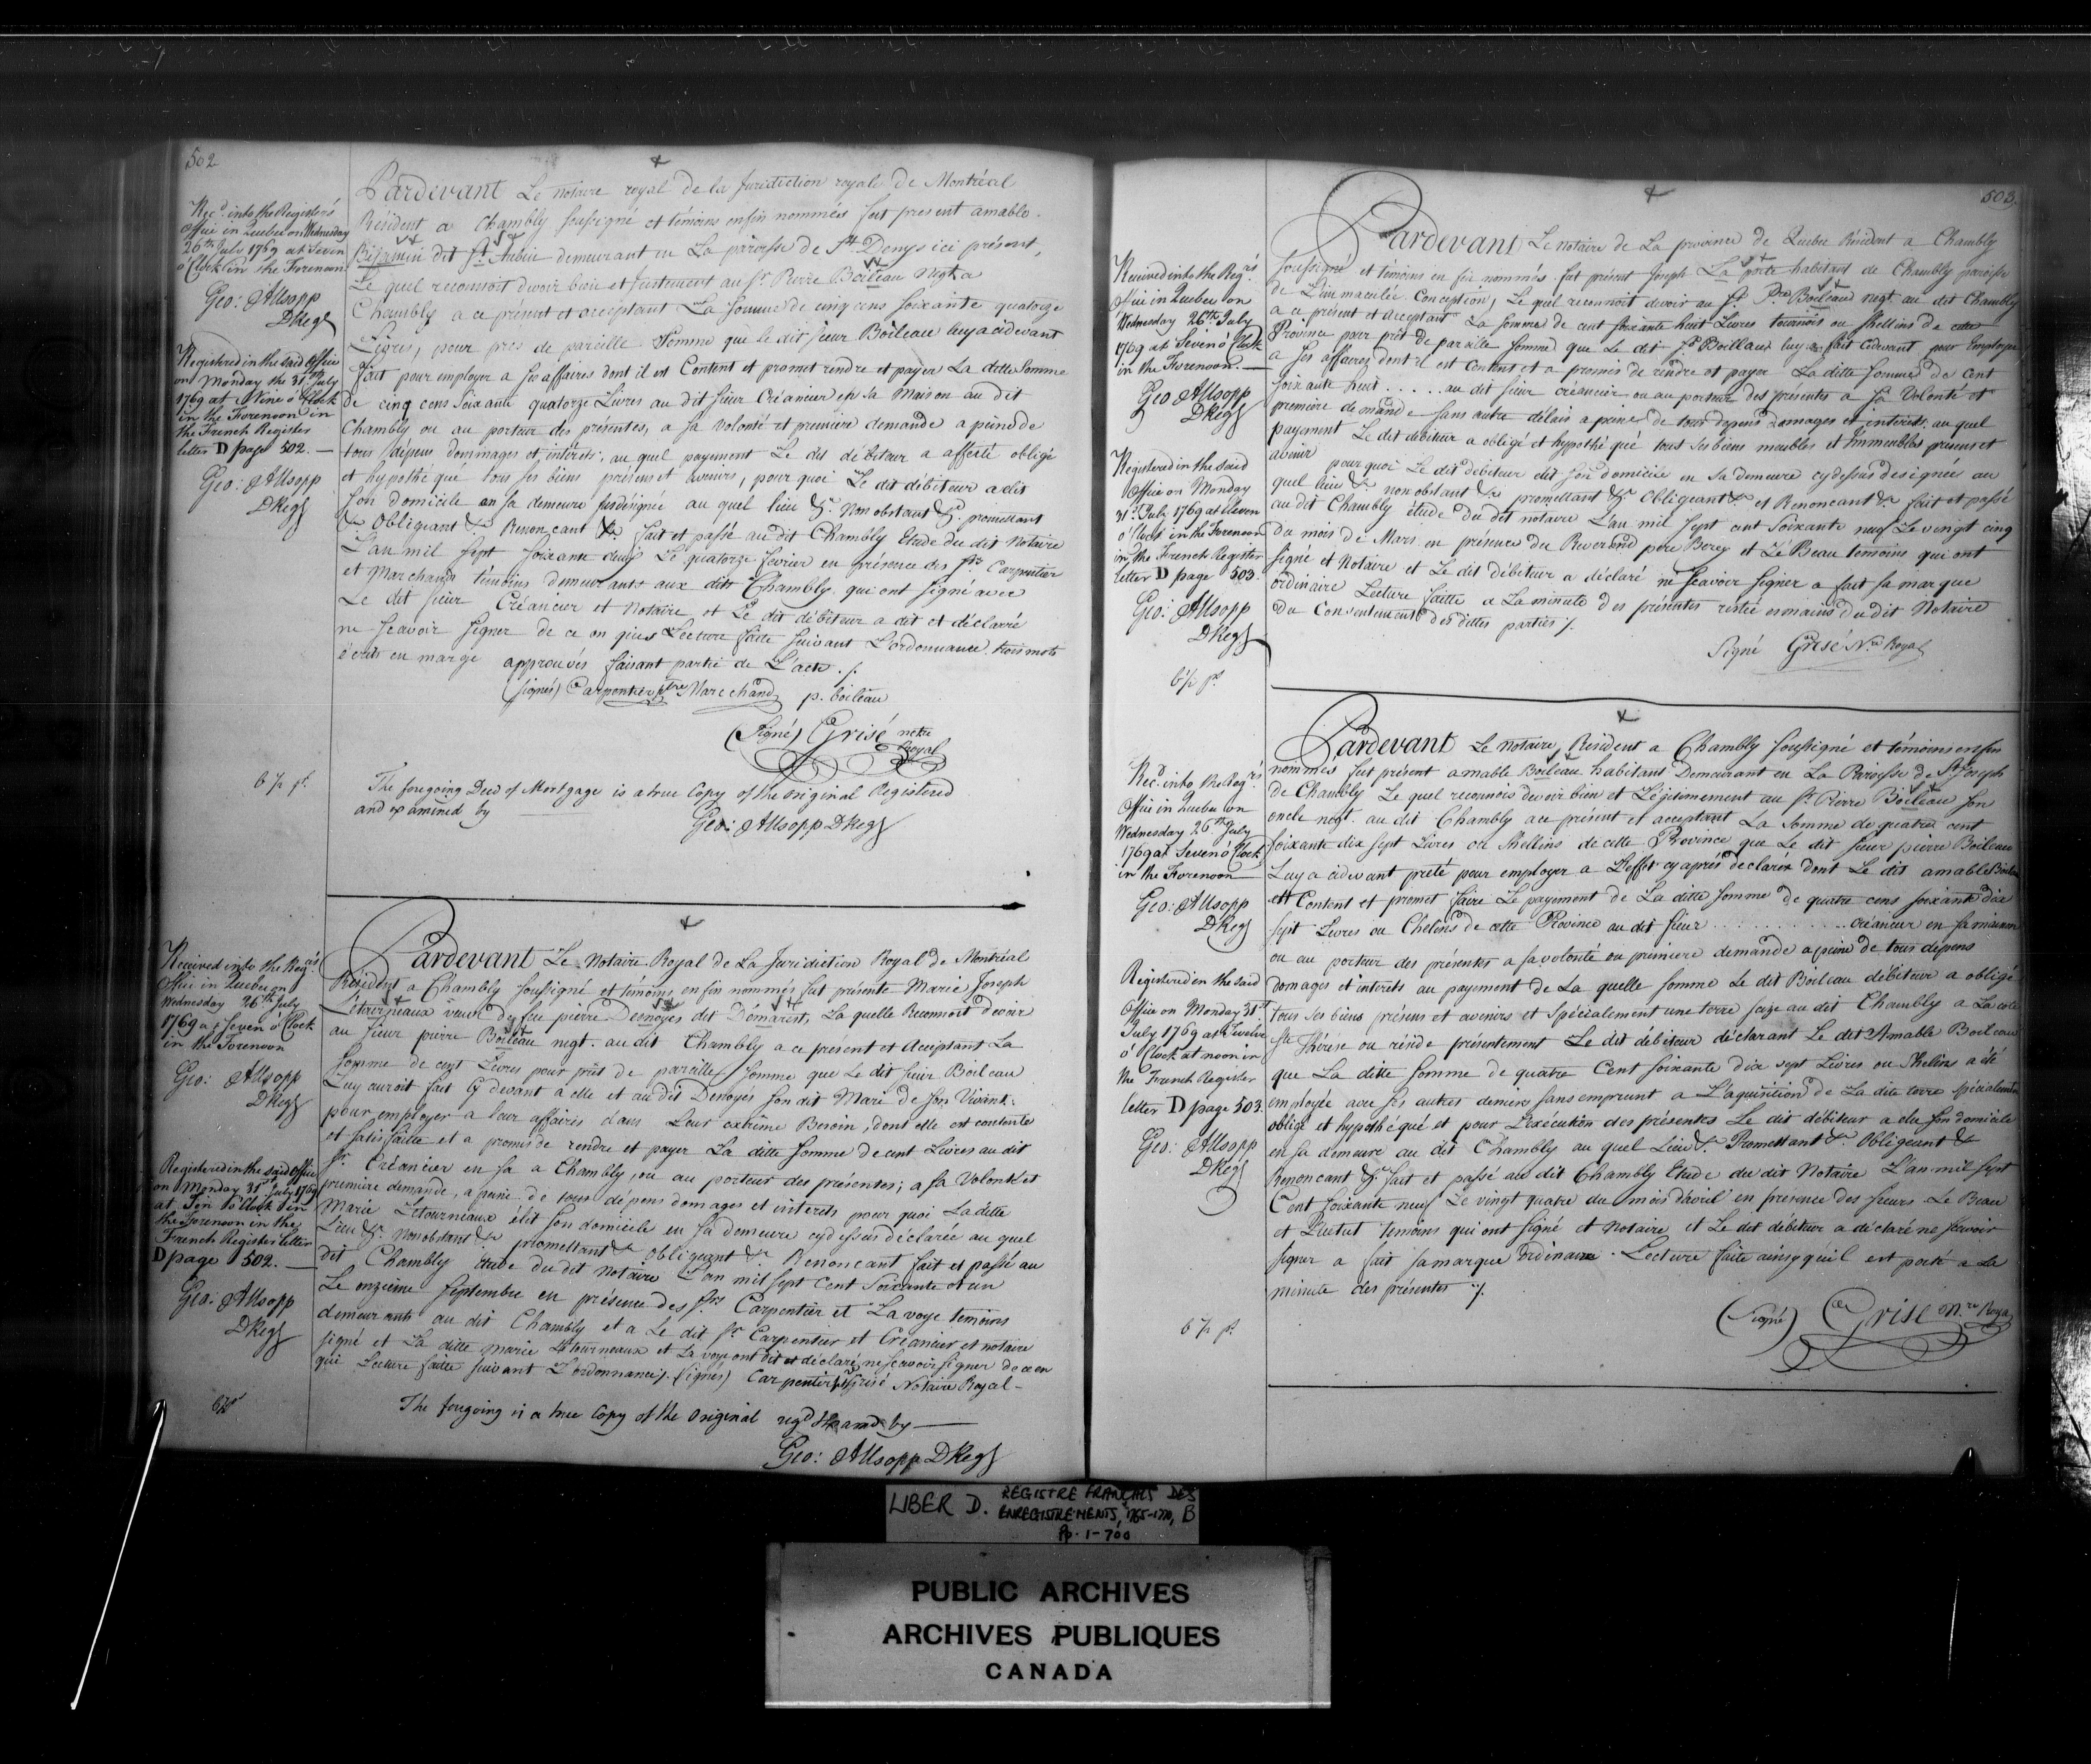 502
Recd. into the Register's
Office in Quebec on Wednesday
26th July 1769 at Seven
o'Clock in the Forenoon
Geo: Allsopp
DReg
Registered in the said Office
on Monday the 31st July
1769 at Nine o'Clock
in the Forenoon in
the French Register
letter D page 502.
Geo: Allsopp
DReg
Pardevant Le notaire royal de la Jurisdiction royale de Montréal
Résident a Chambly soussigné et témoins enfin nommés fut present amable
dit St. Aubin demeurant en La paroisse de St Denys ici présent,
Le quel reconnoit devoir bien et justement au Sr. Pierre Boileau Negt. a
Chambly a ce présent et acceptant La somme de cinq cens soixante quatorze
Livres, pour pres de pareille Somme que le dit sieur Boileau luy a cidevant
fait pour employer a ses affaires dont il est Content et promet rendre et payer La ditte Somme
de cinq cens soixante quatorze Livres au dit sieur Créancier en sa Maison au dit
Chambly ou au porteur des présentes, a sa volonté et première demande a peine de
tous dépens dommages et intérêts, au quel payement Le dit débiteur a affecté obligé
et hypothéqué tous ses biens présens et avenirs, pour quoi Le dit débiteur a élit
son domicile en sa demeure susdésigné au quel lieu &c. Non obstant &c. promettant
&c. Obligeant &c. Renoncant &c. fait et passé au dit Chambly Etude du dit Notaire
L'an mil sept soixante Le quatorze fevrier en présence des Srs. Carpentier
et Marchand témoins demeurants aux dits Chambly qui ont signé avec
Le dit sieur Créancier et Notaire, et Le dit débiteur a dit et déclarré
ne scavoir signer de ce enquis Lecture faite suivant L'ordonnance. trois mots
écrits en marge approuvés faisant partie de L'acte ./.
(signés) Carpentier ptre Marchand p. boileau
(Signé) Grisé notre
Royal
6 /. pd.
The foregoing Deed of Mortgage is a true Copy of the original Registered
and examined by
Geo: Allsopp DReg
Received into the Regrs.
Office in Quebec on
Wednesday 26th July
1769 at Seven o'Clock
in the Forenoon
Geo: Allsopp
DReg
Registered in the said Office
on Monday 31st July 1769
at Ten o'Clock in
the Forenoon in the
French Register letter
D page 502.
Geo: Allsopp
DReg
Pardevant Le Notaire Royal de La Jurisdiction Royal de Montréal
Résident a Chambly soussigné et temoins enfin nommés fut présente Marie Joseph
Létourneaux veuve de feu pierre Denoyes dit Démarest, La quelle Reconnoit devoir
au sieur pierre Boileau negt. au dit Chambly a ce présent et Acceptant La
somme de cent Livres pour prêt de pareille somme que Le dit sieur Boileau
Luy auroit fait Cy devant a elle et au dit Denoyes son dit Mari de son Vivant
pour employer a leur affaires dans Leur extrême Besoin, dont elle est contente
et satisfaitte et a promis de rendre et payer La ditte somme de cent Livres au dit
Sr. Créancier en sa a Chambly, ou au porteur des présentes; a sa Volonté et
première demande, a peine de tous dépens domages et intérêts pour quoi La ditte
Marie Letourneaux élit son domicile en sa demeure cydessus déclarée au quel
Lieu &c. Nonobstant &c. promettant &c. obligeant &c. Renoncant fait et passé au
dit Chambly étude du dit Notaire L'an mil sept Cent Soixante et un
Le onzième septembre en présence des Srs. Carpentier et La voye temoins
demeurants au dit Chambly et a Le dit Sr. Carpentier et Créancier et notaire
signé et La ditte marie Letourneaux et La voye ont dit et déclaré ne scavoir signer de ce en
qui Lecture faitte suivant L'ordonnance /. (signés) Carpentier Grisé Notaire Royal
The foregoing is a true Copy of the Original regd by
Geo: Allsopp DReg
503.
Received into the Regrs.
Office in Quebec on
Wednesday 26th July
1769 at Seven o'Clock
in the Forenoon.
Geo Allsopp
DReg
Registered in the said
Office on Monday
31st July 1769 at eleven
o'Clock in the Forenoon
in the French Register
letter D page 503.
Geo: Allsopp
DReg
Pardevant Le notaire de La province de Quebec Résident a Chambly
soussigné et témoins en fin nommés fut présent Joseph La porte habitant de Chambly paroisse
de L'immaculée Conception, Le quel reconnoit devoir au Sr. Pre. Boileaux negt. au dit Chambly
a ce présent et acceptant La somme de cent soixante huit Livres tournois ou shellins de cette
Province pour prêt de pareille somme que Le dit Sr. Boillaux luy a fait cidevant pour Employer
a ses affaires dont il est content et a promis de rendre et payer La ditte somme de cent
soixante huit ..... au dit sieur créancier ou au porteur des présentes a sa Volonté et
première demande sans autre délais a peine de tous depens domages et interets, au quel
payement Le dit debiteur a obligé et hypothéqué tout ses biens meubles et Immeubles présens et
avenir pourquoi Le dit débiteur élit son domicile en sa demeure cydessus designée au
quel lieu &c. nonobstant &c. promettant &c. Obligeant &c. et Renoncant &c. fait et passé
au dit Chambly étude du dit notaire L'an mil sept cent soixante neuf Le vingt cinq
du mois de Mars en présence du Reverend pere Berey et Lé Beau témoins qui ont
signé et Notaire et Le dit débiteur a déclaré ne scavoir signer a fait sa marque
ordinaire Lecture faitte a La minute des présentes restée es mains du dit Notaire
du Consentement des dittes parties /.
Signé Grisé Nre. Royal
6/. pd.
Recd. into the Regrs.
Office in Quebec on
Wednesday 26th July
1769 at Seven o'Clock
in the Forenoon
Geo: Allsopp
DReg
Registered in the said
Office on Monday 31st
July 1769 at Twelve
o'Clock at noon in
the French Register
letter D page 503.
Geo: Allsopp
DReg
Pardevant Le notaire, Résident a Chambly soussigné et témoins enfin
nommés fut présent amable Boileau habitant Demeurant en La Paroisse de St Joseph
de Chambly Le quel reconnois devoir bien et Légitimement au Sr. Pierre Boileau son
oncle negt. au dit Chambly a ce présent et acceptant La somme de quatre cent
soixante dix sept Livres ou Shellins de cette Province que Le dit sieur pierre Boileau
Luy a cidevant prêté pour employer a L'effet cy après déclarée dont Le dit amable Boileau
est Content et promet faire Le payement de La ditte somme de quatre cens soixante dix
sept Livres ou Chelins de cette Province au dit sieur .......... créancier en sa maison
ou au porteur des présentes a sa volonté ou première demande a peine de tous dépens
domages et interets au payement de La quelle somme Le dit Boileau débiteur a obligé
tous ses biens présens et avenirs et Spécialement une terre size au dit Chambly a La cote
Ste Thérèse ou réside présentement Le dit débiteur déclarant Le dit Amable Boileau
que La ditte somme de quatre Cent soixante dix sept Livres ou Shelins a été
employée avec ses autres deniers sans emprunt a L'aquisition de La dite terre spécialement
obligé et hypothéqué et pour L'exécution des présentes Le dit débiteur a élu son domicile
en sa demeure au dit Chambly au quel Lieu &c. Promettant &c. Obligeant &c
Renoncant &c. fait et passé au dit Chambly Etude du dit Notaire L'an mil sept
Cent soixante neuf Le vingt quatre du mois d'avril en presence des sieurs Le Beau
et temoins qui ont signé et Notaire et Le dit débiteur a déclaré ne scavoir
signer a fait sa marque ordinaire. Lecture faite ainsy qu'il est porté a La
minute des présentes ./.
(Signé) Grisé Nre Royal
6/. pd.
LIBER D. REGISTRE FRANÇAIS DES
ENREGISTREMENTS, 1765-1770, B
Pp. 1-700
PUBLIC ARCHIVES
ARCHIVES PUBLIQUES
CANADA